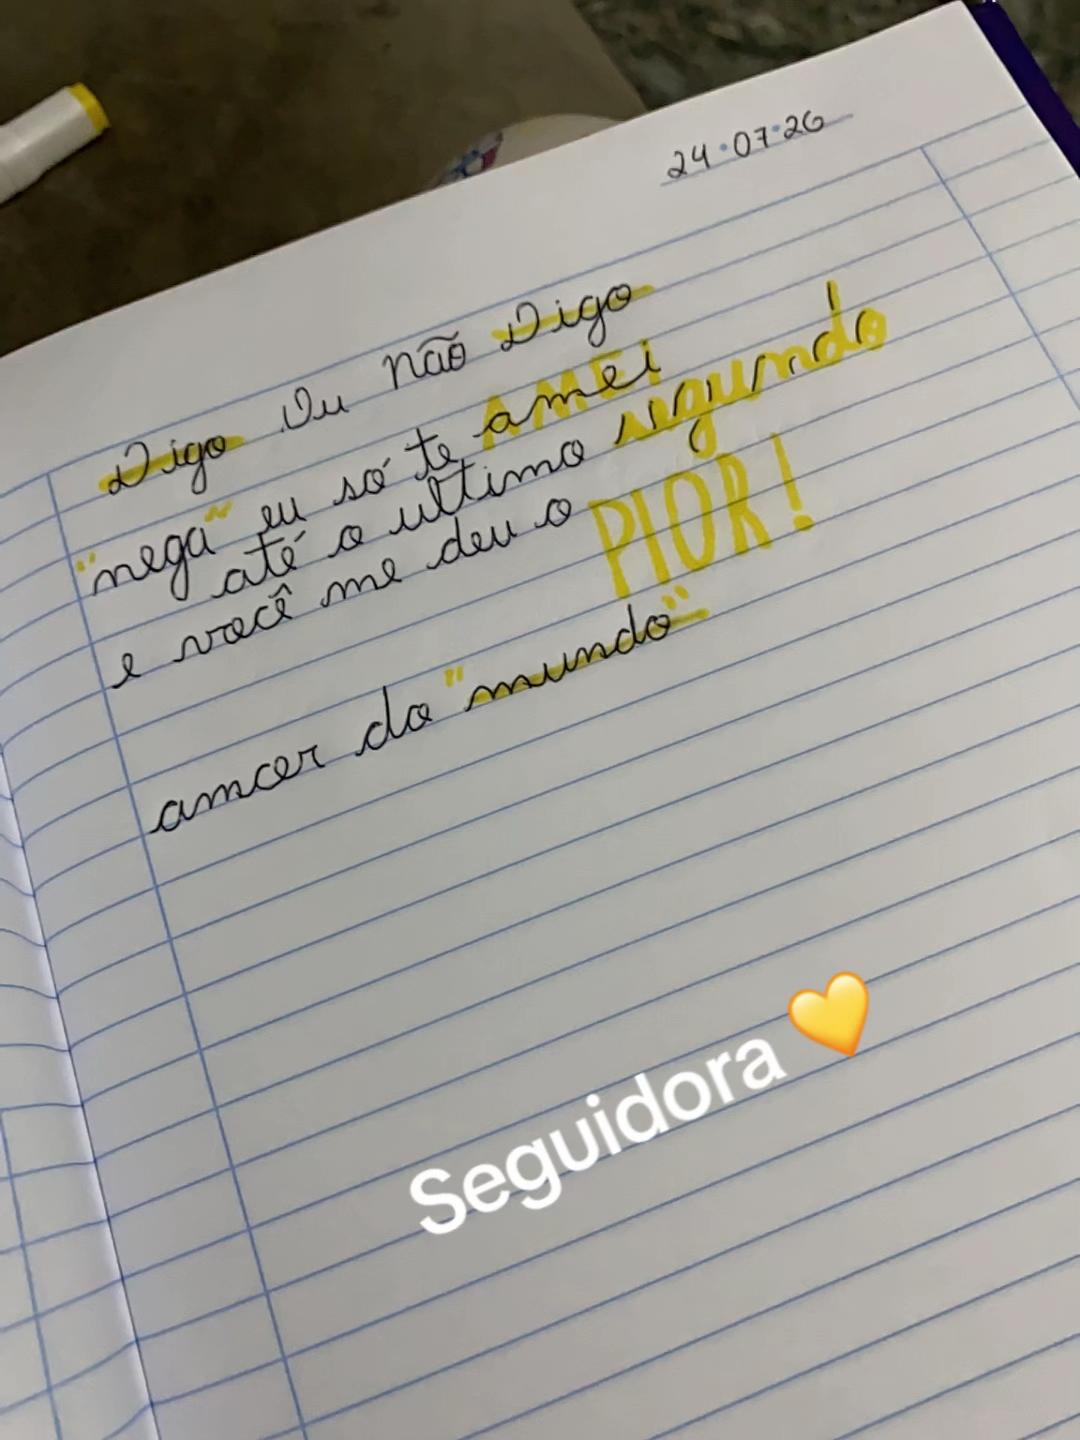 24·07·26
Digo Ou não Digo
"nega" eu só te amei AMEI
até o ultimo segundo
e você me deu o PIOR!
amcer do "mundo"
Seguidora 💛